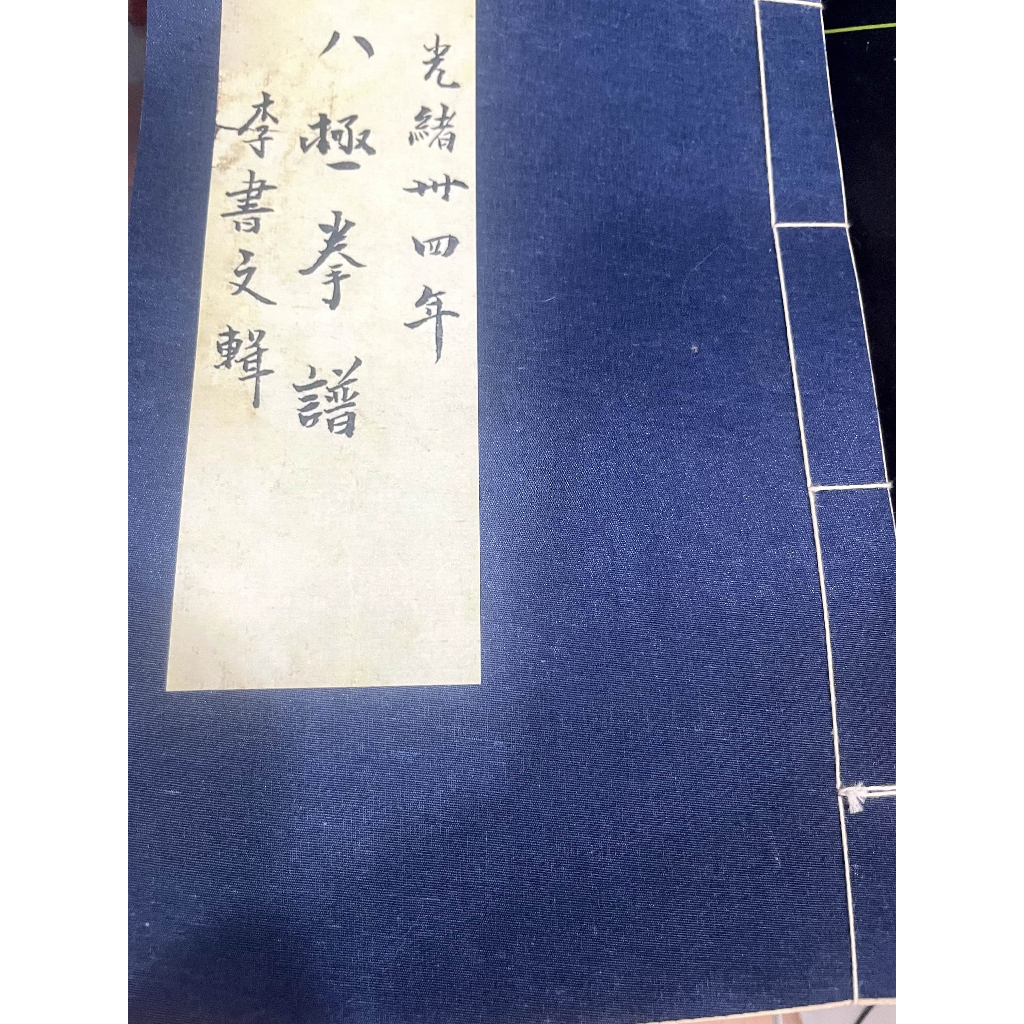 光緒卅四年
八極拳譜
李書文輯